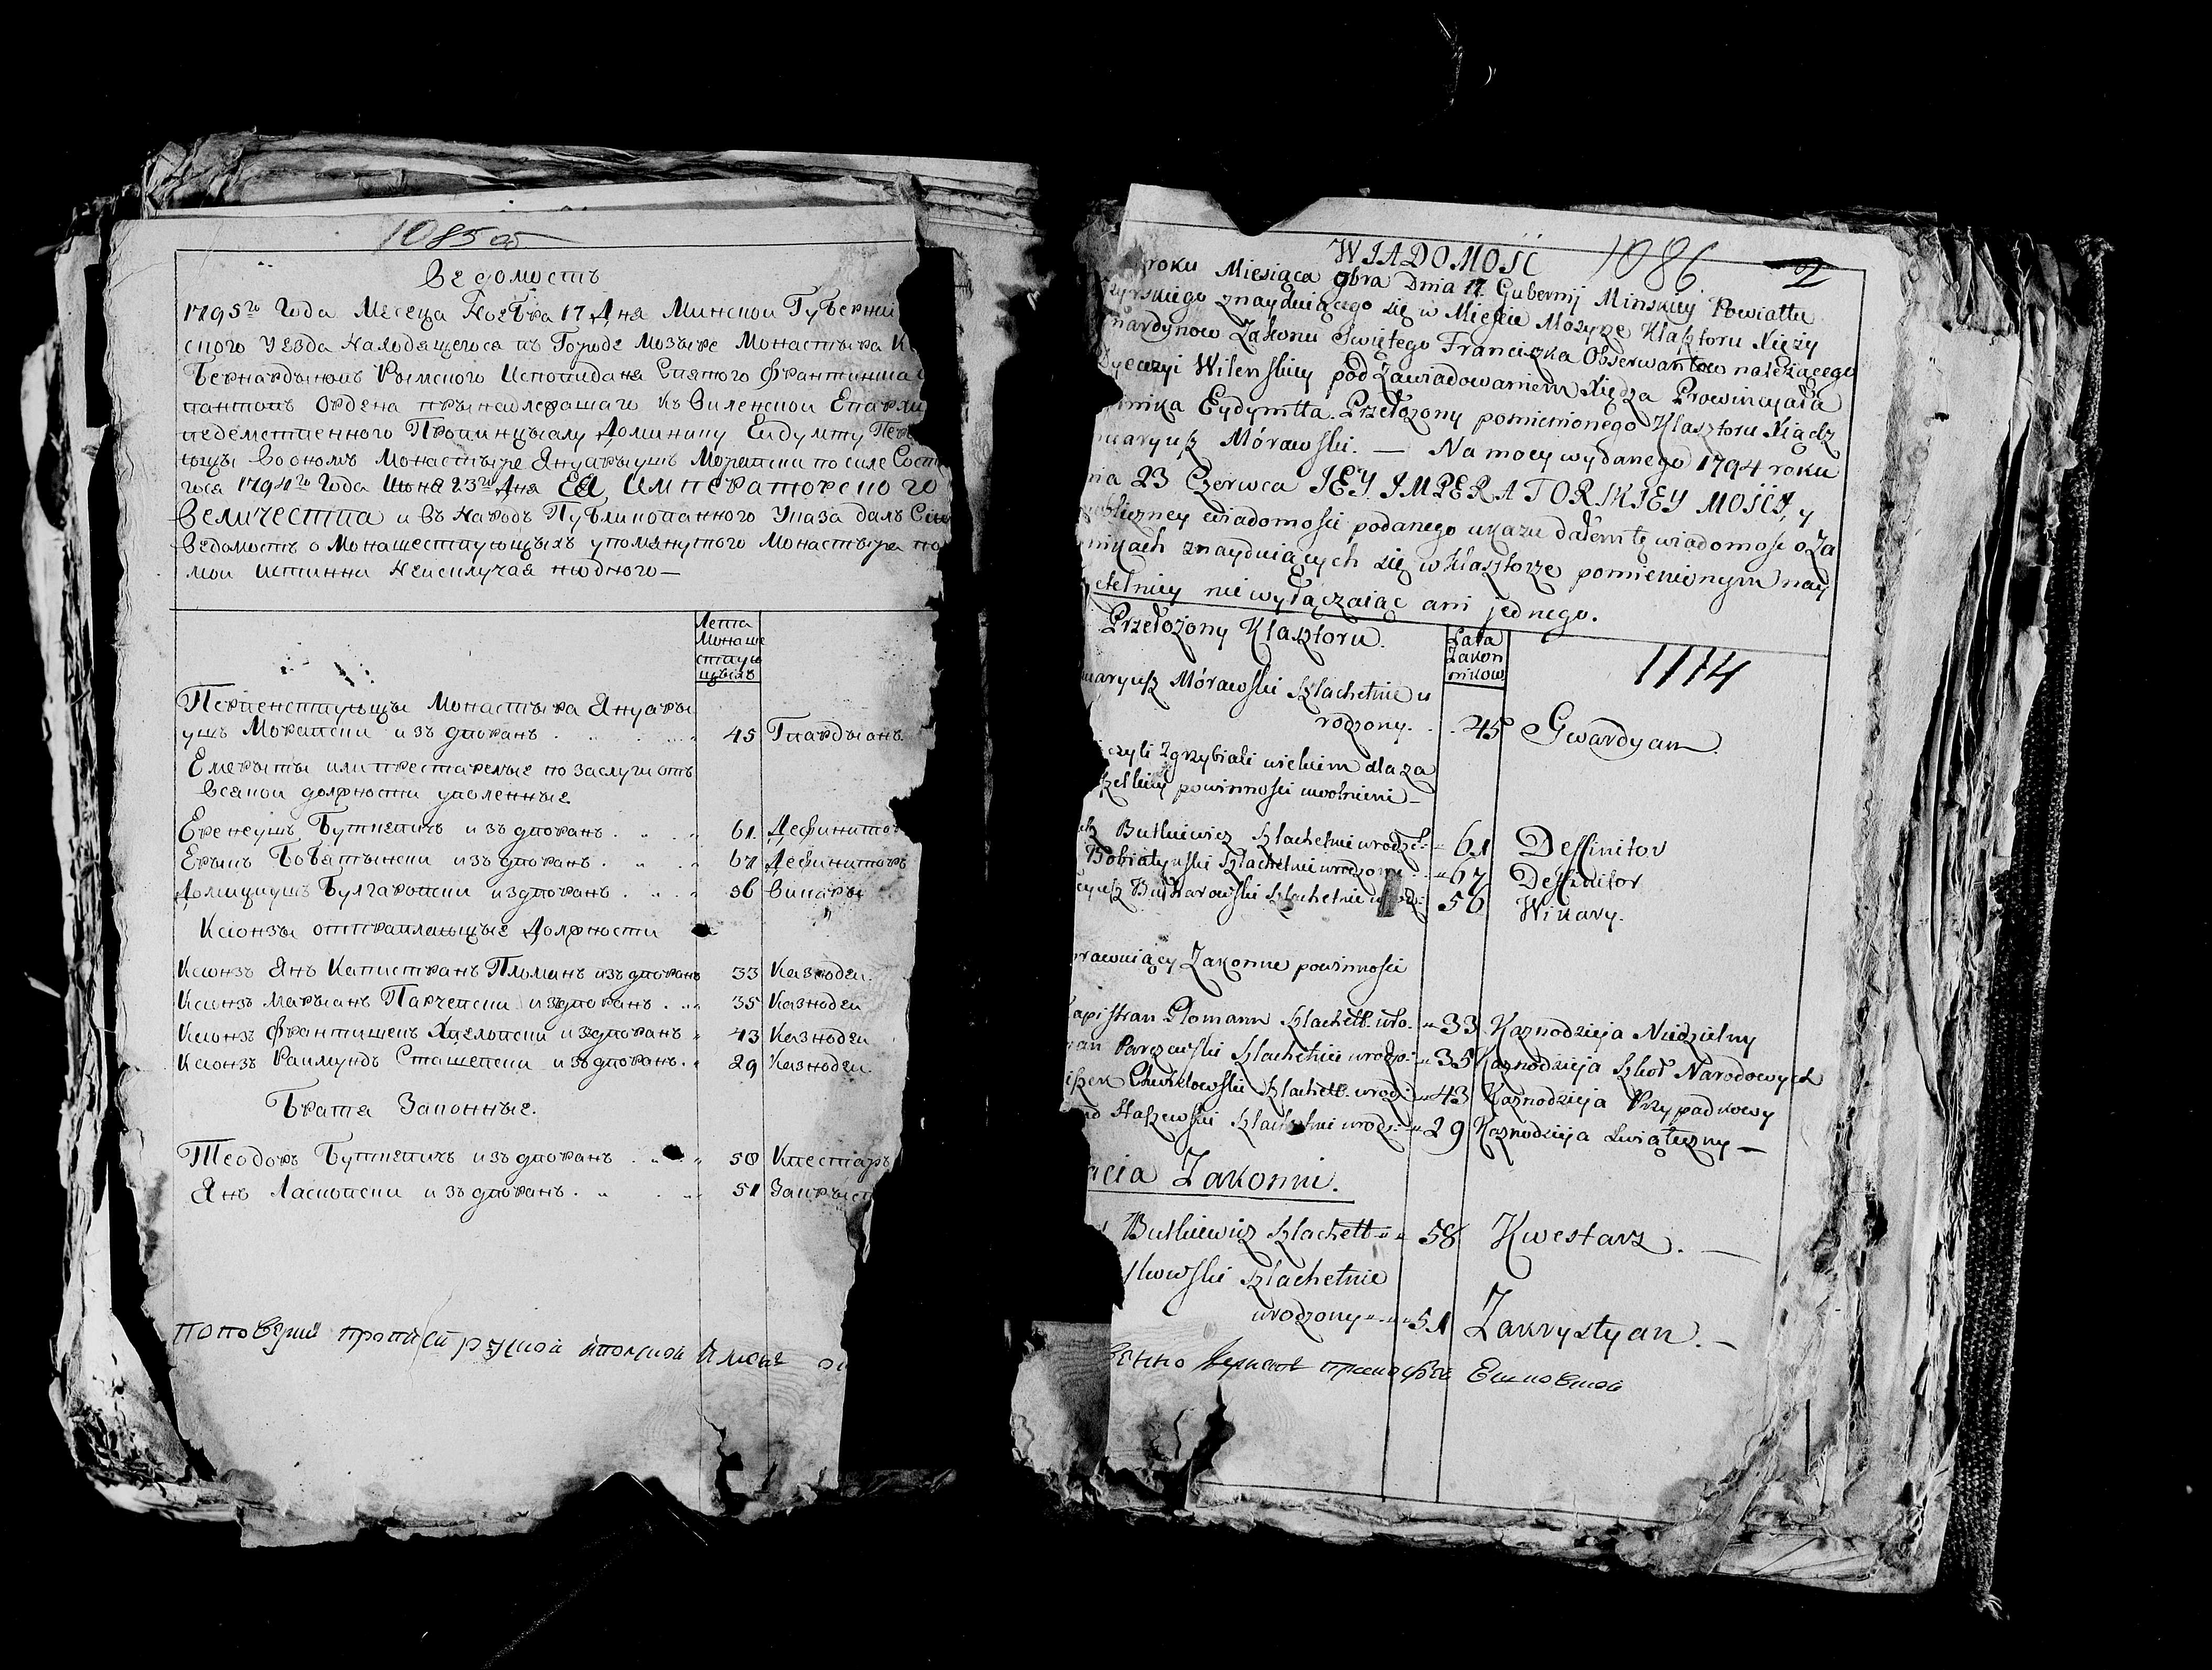 1085 об
Ведомость
1795го Года Месеца Ноебра 17 Дня Минскои Губерніи
ского Уезда Находящегося въ Городе Мозыре Монастыра
Бернардыновъ Рымского Исповиданя Святого Францишка
вантовъ Ордена прынадлежащаго къ Виленскои Епархіи
ведемственного Провинцыалу Доминику Ейдумту Пер
ющы восномъ Монастыре Януарыушъ Моравски по силе Сост
гося 1794го Года Июня 23го Дня ЕЯ Императорского
Величества и въ Народъ Публикованного Указа далъ Сию
Ведомость о Монашествующыхъ упомянутого Монастыра по
мои истинни Неисключая ни одного—
Лета
Монаше
ствую
щыхъ
Первенствующы Монастыра Януары
ушъ Моравски изъ дворанъ 45 Гвардыанъ
Емерыты или престарелые по заслугиотъ
Всякои должности уволенные
Еренеушъ Буткевичъ изъ дворанъ 61 Дефинитор
Ерымъ Бобатынски изъ дворанъ 67 Дефинитоъ
Домициушъ Булгаровски издворанъ 56 Викары
Ксіонзы отправлающые Должности
Ксіонзъ Янъ Капистранъ Пломанъ изъ дворанъ 33 Казнодеи
Ксіонзъ Марыанъ Парчевски издворанъ 35 Казнодеи
Ксіонзъ Францишекъ Хвеловски издворанъ 43 Казнодеи
Ксіонзъ Раимундъ Сташевски изъ дворанъ 29 Казнодеи
Брата Законные.
Теодоръ Буткевичъ изъ дворанъ 58 Квестаръ
Янъ Ласковски изъ дворанъ 51 Закрыст
WIADOMOSĆ 1086 2
roku Miesiąca 9bra Dnia 17 Gubernij Minskiey Powiattu
zyrskiego znayduiącego się w Miescie Mozyrze Klasztoru Xięży
nardynow Zakonu Swiętego Franciszka Obserwantow należącego
Dyecezyi Wilenskiey pod Zawiadowaniem Xiędza Prowincyała
minika Eydymtta. Przełożony pomienionego Klasztoru Xiądz
nuaryusz Mórawski. — Na mocy wydanego 1794 roku
nia 23 Czerwca IEY IMPERATORSKIEY MOSCI, y
publiczney wiadomosci podanego ukazu dałem tę wiadomosc o Za
nnikach znayduiących się w Klasztorze pomienionym nay
telniey nie wyłączaiąc ani jednego.
Przełożony Klasztoru.
Lata
Zakon
nikow
1114
nuaryusz Mórawski szlachetnie u
rodzony. 45 Gwardyan.
czyli Zgrzybiali wiekiem dla za
szelkiey powinnosci uwolnieni —
Butkiewicz Szlachetnie urodz: 61 Deffinitor
Bobiatynski Szlachetnie urodzony 67 Deffinitor
cyusz Bulharowski Szlachetnie urodz: 56 Wikary.
rawuiący Zakonne powinnosci
Kapistran Plomann Szlachett. uro. 33 Kaznodzieja Niedzielny
ran Parczewski Szlachetnie urodzo: 35 Kaznodzieja Szkoł Narodowych
iszek Chwietowski Szlachett. urodz: 43 Kaznodzieja Przypadkowy
nd Staszewski Szlachetnie urodz: 29 Kaznodzieja Swiąteczny —
racia Zakonni.
Butkiewicz Szlachett 58 Kwestarz. —
skowski Szlachetnie
urodzony 51 Zakrystyan. —